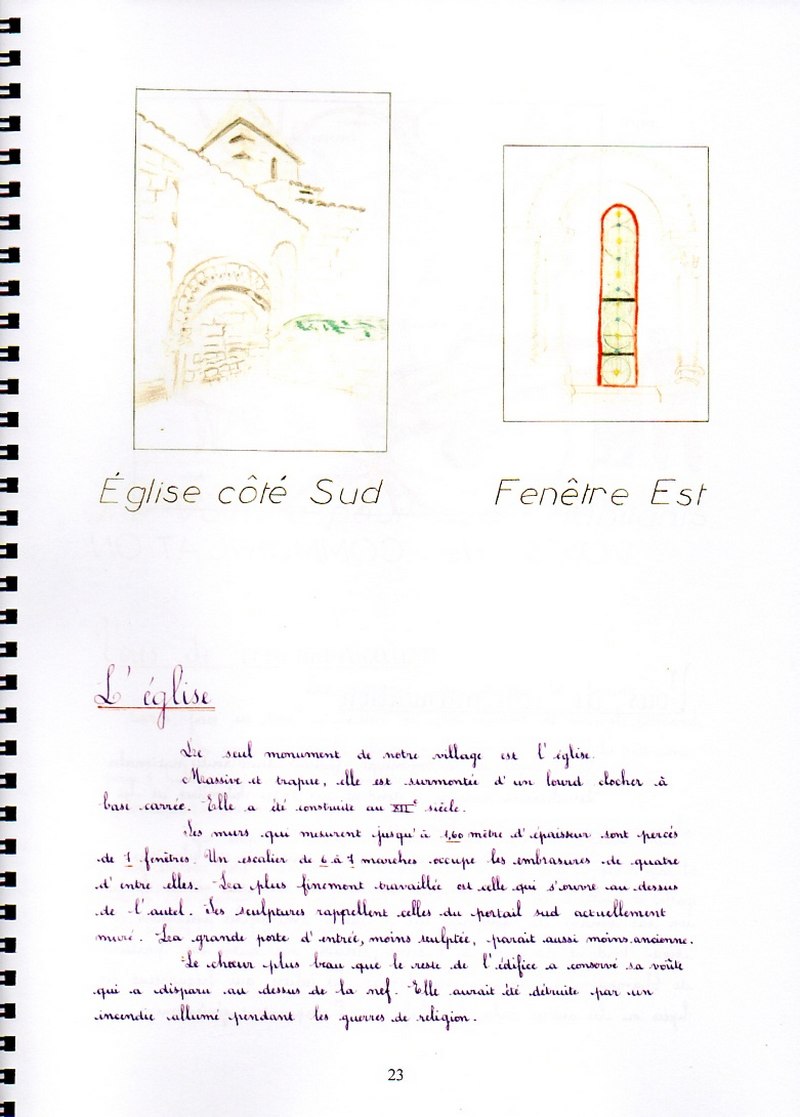 Église côté Sud
Fenêtre Est
L'église
Le seul monument de notre village est l'église.
Massive et trapue, elle est surmontée d'un lourd clocher à
base carrée. Elle a été construite au XIIe siècle.
Ses murs qui mesurent jusqu'à 1,60 mètre d'épaisseur sont percés
de 7 fenêtres. Un escalier de 6 à 7 marches occupe les embrasures de quatre
d'entre elles. La plus finement travaillée est celle qui s'ouvre au dessus
de l'autel. Ses sculptures rappellent celles du portail sud actuellement
muré. La grande porte d'entrée, moins sculptée, parait aussi moins ancienne.
Le chœur plus beau que le reste de l'édifice a conservé sa voûte
qui a disparu au dessus de la nef. Elle aurait été détruite par un
incendie allumé pendant les guerres de religion.
23